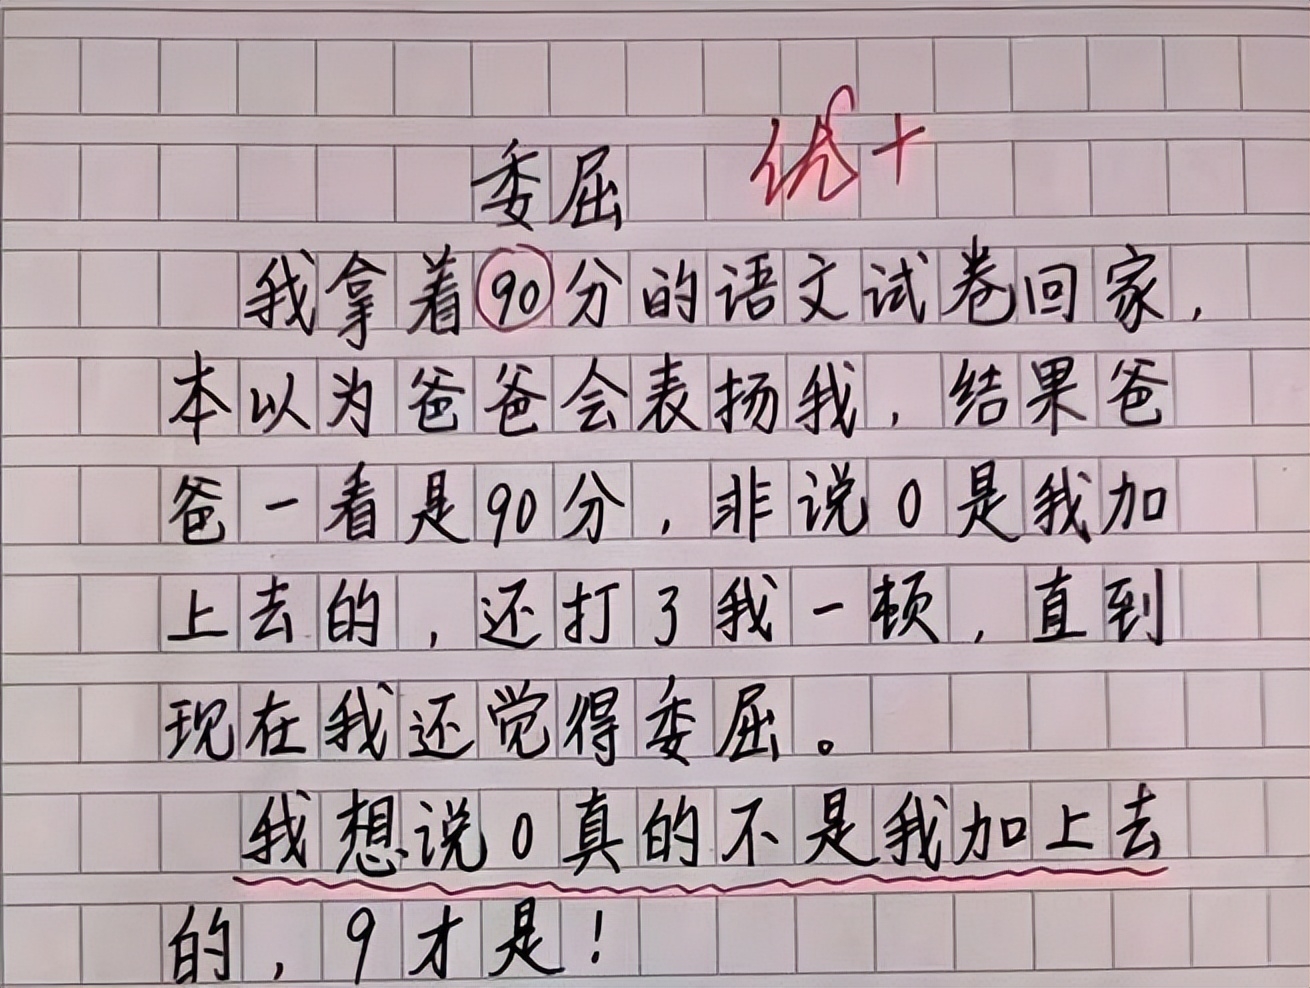 委屈 优+
我拿着90分的语文试卷回家,
本以为爸爸会表扬我,结果爸
爸一看是90分,非说0是我加
上去的,还打了我一顿,直到
现在我还觉得委屈。
我想说0真的不是我加上去
的,9才是!